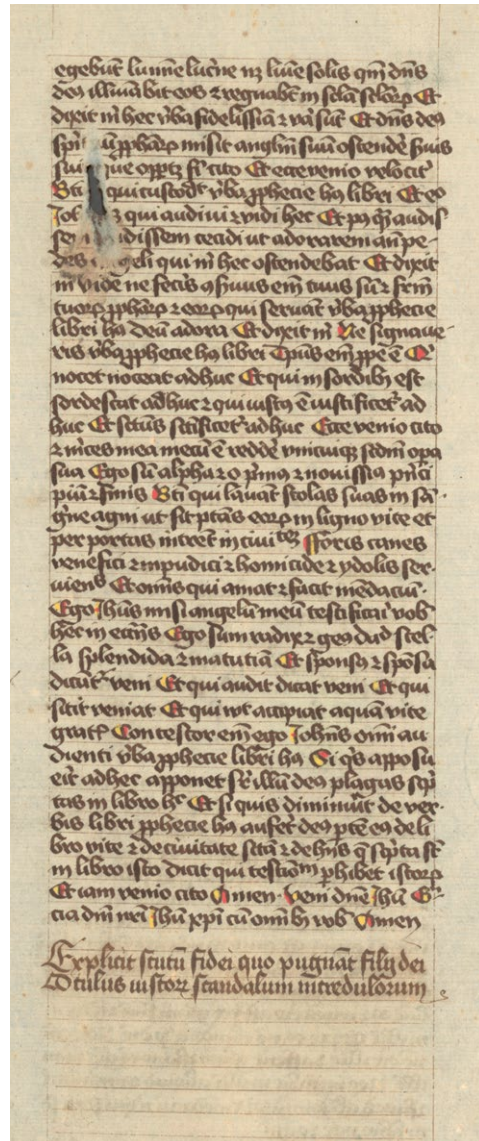 egebūt lumīe lucrne nz lumīe solis qm̄ dn̄s
deꝰ illūīabit eos ⁊ regnabt̄ in sc̄la sclorꝝ Et
dixit m̄ hec v̄ba fidelissīa ⁊ va sūt Et dn̄s deꝰ
ꝓphārꝝ misit anglm̄ suū ostendē suis
que oportz fi cito Et ecce venio velocit̄
Bti qui custodt̄ v̄ba ꝓphecie hꝰ libri Et eo
qui audiui ⁊ vidi hec Et pꝰ qͣ audis
cecidi ut adorarem an̄ pe-
des qui m̄ hec ostendebat Et dixit
m̄ vide ne fecīs ꝯseruus em̄ tuus sū ⁊ frm̄
tuorꝝ ꝓphārꝝ ⁊ eorꝝ qui seruāt v̄ba ꝓphecie
libri hꝰ deū adora Et dixit m̄ Ne signaue-
ris v̄ba ꝓphecie hꝰ libri Tpus em̄ ꝓpe ē Qͥ
nocet noceat adhuc Et qui in sordibꝫ est
sordescat adhuc ⁊ qui iustꝰ ē iustificet̄ ad
huc Et sc̄tus sc̄ificet̄ adhuc Ecce venio cito
⁊ m̄ces mea mecū ē reddē vnicuiqꝫ scdm̄ opa
sua Ego sū alpha ⁊ o pͥmꝰ ⁊ nouissīꝰ pͥnci
piū ⁊ finis Bti qui lauāt stolas suas in sā-
gͥne agni ut sit ptās eorꝝ in ligno vite et
per portas intrēt in ciuitēꝫ Foris canes
venefici ⁊ inpudici ⁊ homicide ⁊ ydolis ser-
uiens Et omis qui amat ⁊ facit mēdaciū.
Ego Jhus misi angelū meū testificai vob̄
hec in eccīis Ego sum radix ⁊ genꝰ dad stel
la splendida ⁊ matutīa Et sponsꝰ ⁊ spōsa
dicūt veni Et qui audit dicat veni Et qui
sitit veniat Et qui wt̄ accipiat aquā vite
grat̄ Contestor em̄ ego Johns om̄i au
dienti v̄ba ꝓphecie libri hꝰ Si qͥs apposu
eit̄ ad hec apponet sr̄ illū deꝰ plagas scͥp
tas in libro hͦ Et si quis diminuit̄ de ver-
bis libri ꝓphecie hꝰ aufet̄ deꝰ ptē eꝰ de li
bro vite ⁊ de ciuitate sc̄ta ⁊ de hiis q̄ scͥpta st̄
in libro isto dicit qui testioīm ꝑhibet istorꝝ
Et iam venio cito Amen. Veni dn̄e Jhū Gͣ
cia dn̄i nr̄i Jhū xpi cū om̄ibꝫ vob̄ Amen
Explicit scutū fidei quo pugnāt filij dei
Oculus iustorꝝ scandalum incredulorum